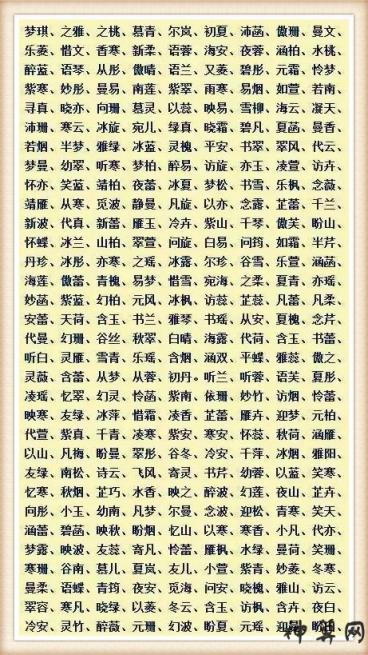 梦琪、之雅、之桃、慕青、尔岚、初夏、沛菡、傲珊、曼文、
乐菱、惜文、香寒、新柔、语蓉、海安、夜蓉、涵柏、水桃、
醉蓝、语琴、从彤、傲晴、语兰、又菱、碧彤、元霜、怜梦、
紫寒、妙彤、曼易、南莲、紫翠、雨寒、易烟、如萱、若南、
寻真、晓亦、向珊、慕灵、以蕊、映易、雪柳、海云、凝天、
沛珊、寒云、冰旋、宛儿、绿真、晓霜、碧凡、夏菡、曼香、
若烟、半梦、雅绿、冰蓝、灵槐、平安、书翠、翠风、代云、
梦曼、幼翠、听寒、梦柏、醉易、访旋、亦玉、凌萱、访卉、
怀亦、笑蓝、靖柏、夜蕾、冰夏、梦松、书雪、乐枫、念薇、
靖雁、从寒、觅波、静曼、凡旋、以亦、念露、芷蕾、千兰、
新波、代真、新蕾、雁玉、冷卉、紫山、千琴、傲芙、盼山、
怀蝶、冰兰、山柏、翠萱、问旋、白易、问筠、如霜、半芹、
丹珍、冰彤、亦寒、之瑶、冰露、尔珍、谷雪、乐萱、涵菡、
海莲、傲蕾、青槐、易梦、惜雪、宛海、之柔、夏青、亦瑶、
妙菡、紫蓝、幻柏、元风、冰枫、访蕊、芷蕊、凡蕾、凡柔、
安蕾、天荷、含玉、书兰、雅琴、书瑶、从安、夏槐、念芹、
代曼、幻珊、谷丝、秋翠、白晴、海露、代荷、含玉、书蕾、
听白、灵雁、雪青、乐瑶、含烟、涵双、平蝶、雅蕊、傲之、
灵薇、含蕾、从梦、从蓉、初丹。听兰、听蓉、语芙、夏彤、
凌瑶、忆翠、幻灵、怜菡、紫南、依珊、妙竹、访烟、怜蕾、
映寒、友绿、冰萍、惜霜、凌香、芷蕾、雁卉、迎梦、元柏、
代萱、紫真、千青、凌寒、紫安、寒安、怀蕊、秋荷、涵雁、
以山、凡梅、盼曼、翠彤、谷冬、冷安、千萍、冰烟、雅阳、
友绿、南松、诗云、飞风、寄灵、书芹、幼蓉、以蓝、笑寒、
忆寒、秋烟、芷巧、水香、映之、醉波、幻莲、夜山、芷卉、
向彤、小玉、幼南、凡梦、尔曼、念波、迎松、青寒、笑天、
涵蕾、碧菡、映秋、盼烟、忆山、以寒、寒香、小凡、代亦、
梦露、映波、友蕊、寄凡、怜蕾、雁枫、水绿、曼荷、笑珊、
寒珊、谷南、慕儿、夏岚、友儿、小萱、紫青、妙菱、冬寒、
曼柔、语蝶、青筠、夜安、觅海、问安、晓槐、雅山、访云、
翠容、寒凡、晓绿、以菱、冬云、含玉、访枫、含卉、夜白、
冷安、灵竹、醉薇、元珊、幻波、盼夏、元瑶、迎曼、
神算网